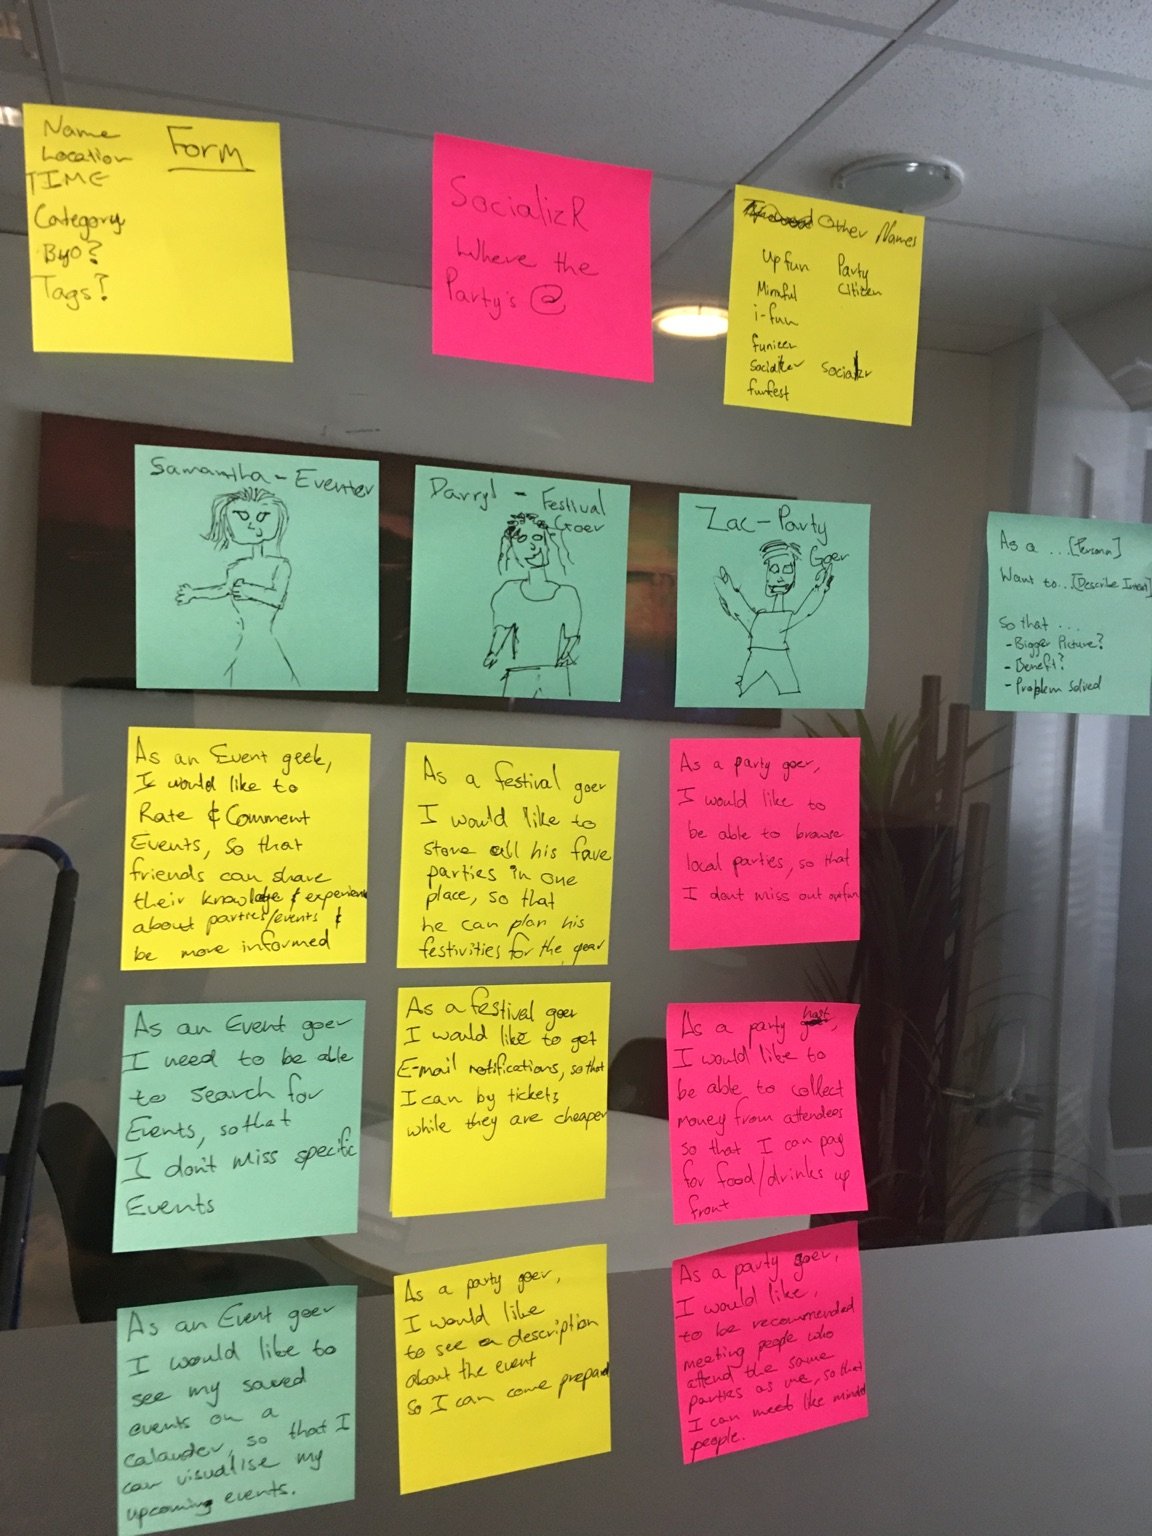 Form
Name
Location
TIME
Category
Byo?
Tags?
SocializR
Where the
Party's @
Other Names
Upfun Party
Citizen
i-fun
funfest
Samantha - Eventer
Darryl - Festival
Goer
Zac - Party
Goer
As a ... [Person]
Want to... [Describe
So that ...
- Bigger Picture?
- Benefit?
- Problem solved
As an Event geek,
I would like to
Rate & Comment
Events, so that
friends can share
their knowledge & experience
about parties/events &
be more informed
As a festival goer
I would like to
store all his fave
parties in one
place, so that
he can plan his
festivities for the year
As a party goer,
I would like to
be able to browse
local parties, so that
I dont miss out
As an Event goer
I need to be able
to search for
Events, so that
I don't miss specific
Events
As a festival goer
I would like to get
E-mail notifications, so that
I can by tickets
while they are cheaper
As a party host,
I would like to
be able to collect
money from attendees
so that I can pay
for food/drinks up
front
As an Event goer
I would like to
see my saved
events on a
calander, so that I
can visualise my
upcoming events.
As a party goer,
I would like
to see a description
about the event
so I can come prepared
As a party goer,
I would like,
to be recommended
meeting people who
attend the same
parties as me, so that
I can meet like minded
people.